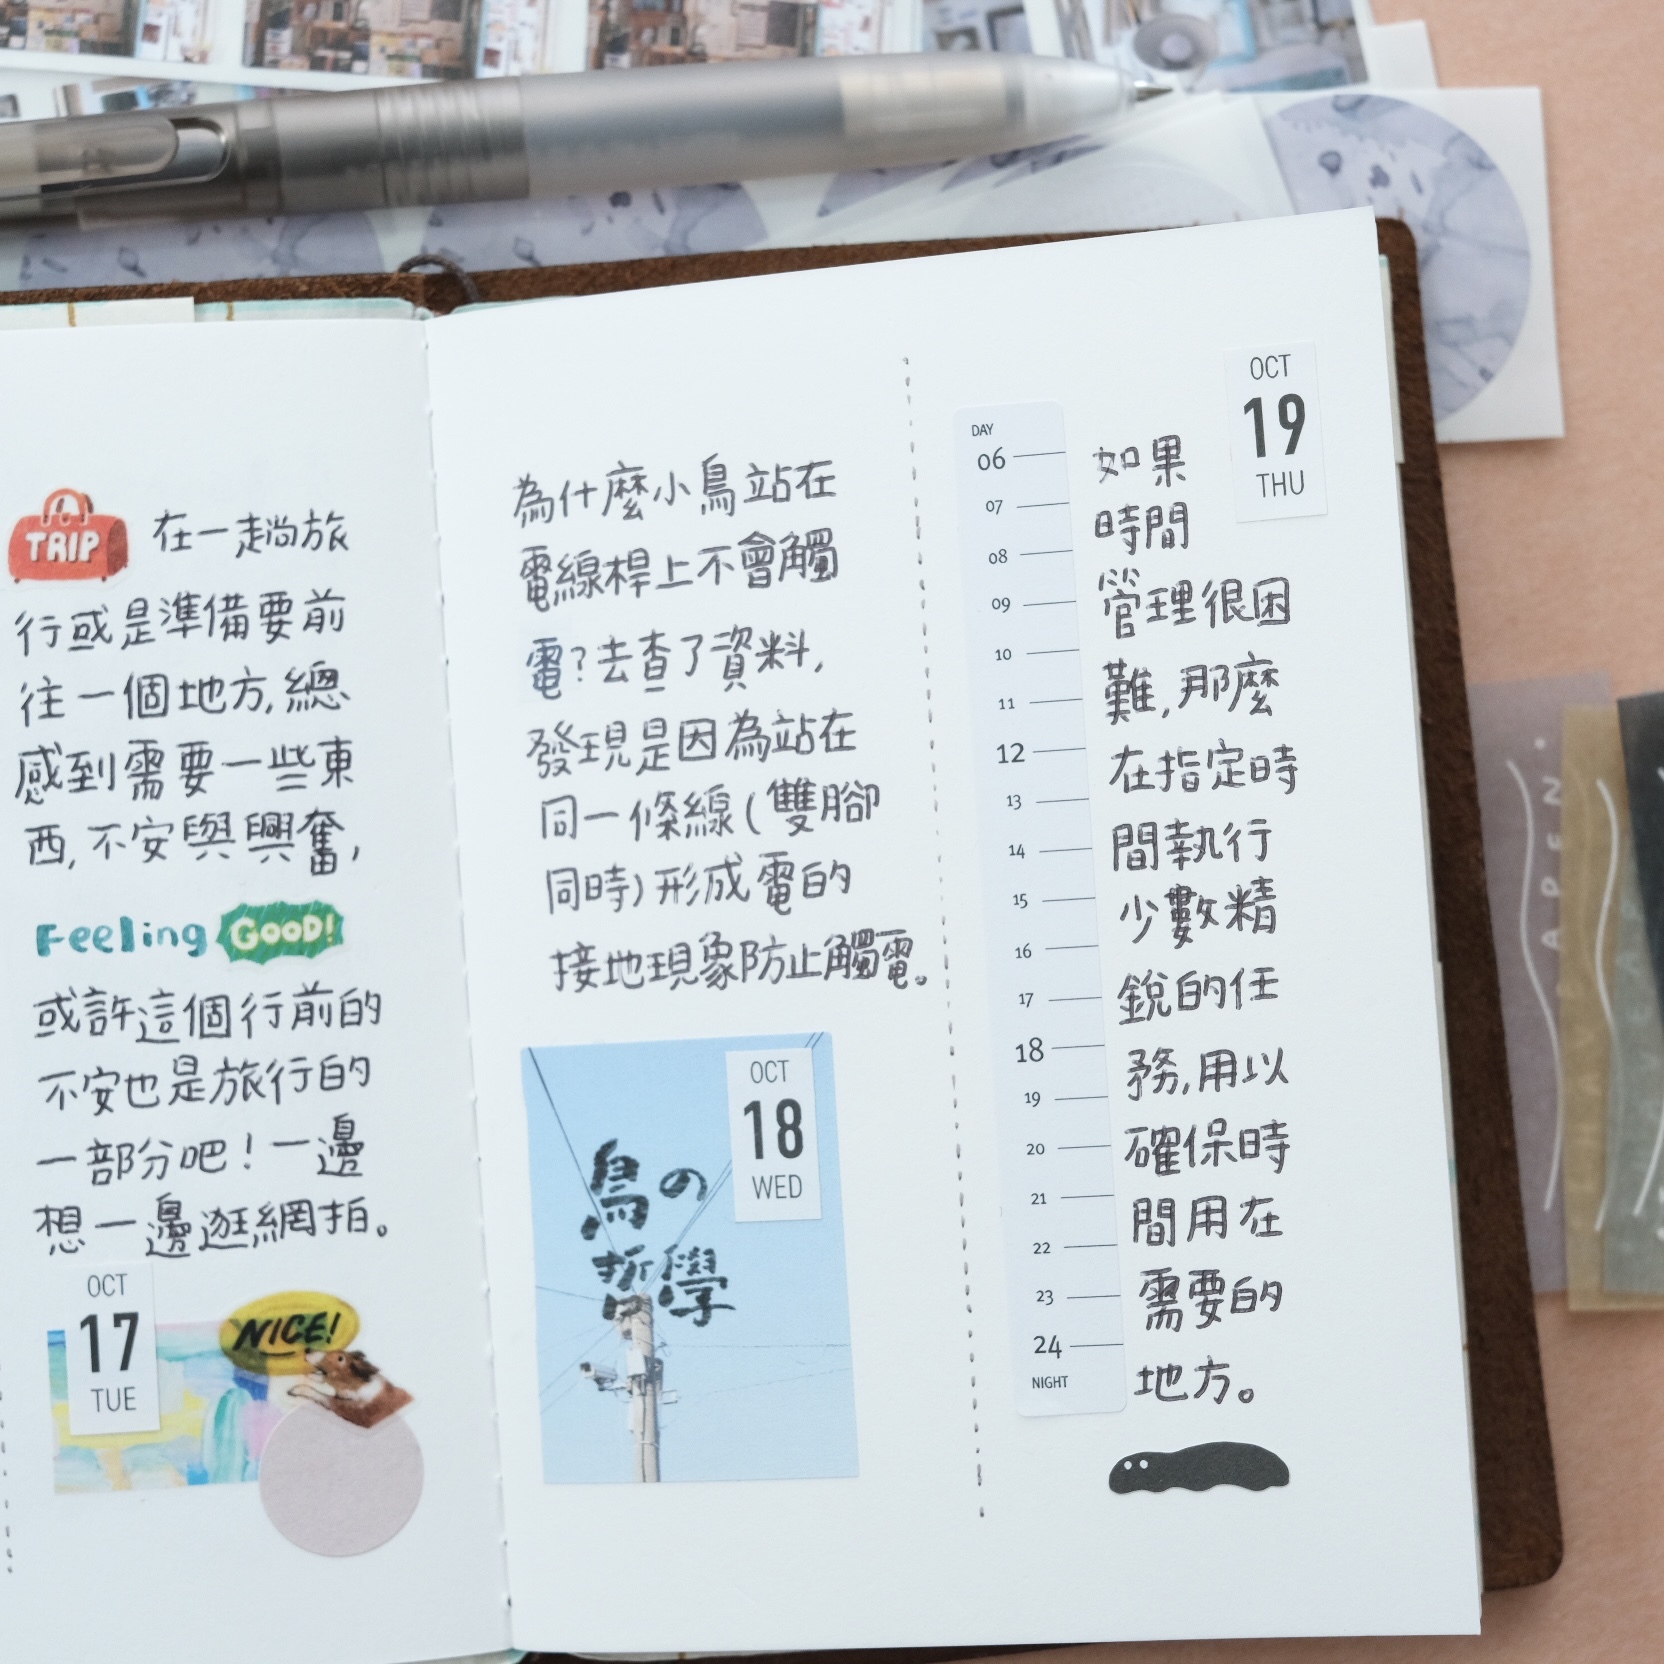 TRIP 在一趟旅
行或是準備要前
往一個地方,總
感到需要一些東
西,不安與興奮,
Feeling GOOD!
或許這個行前的
不安也是旅行的
一部分吧!一邊
想一邊逛網拍。
OCT
17
TUE
NICE!
為什麼小鳥站在
電線桿上不會觸
電?去查了資料,
發現是因為站在
同一條線(雙腳
同時)形成電的
接地現象防止觸電。
OCT
18
WED
鳥の
哲學
OCT
19
THU
DAY
06
07
08
09
10
11
12
13
14
15
16
17
18
19
20
21
22
23
24
NIGHT
如果
時間
管理很困
難,那麼
在指定時
間執行
少數精
銳的任
務,用以
確保時
間用在
需要的
地方。